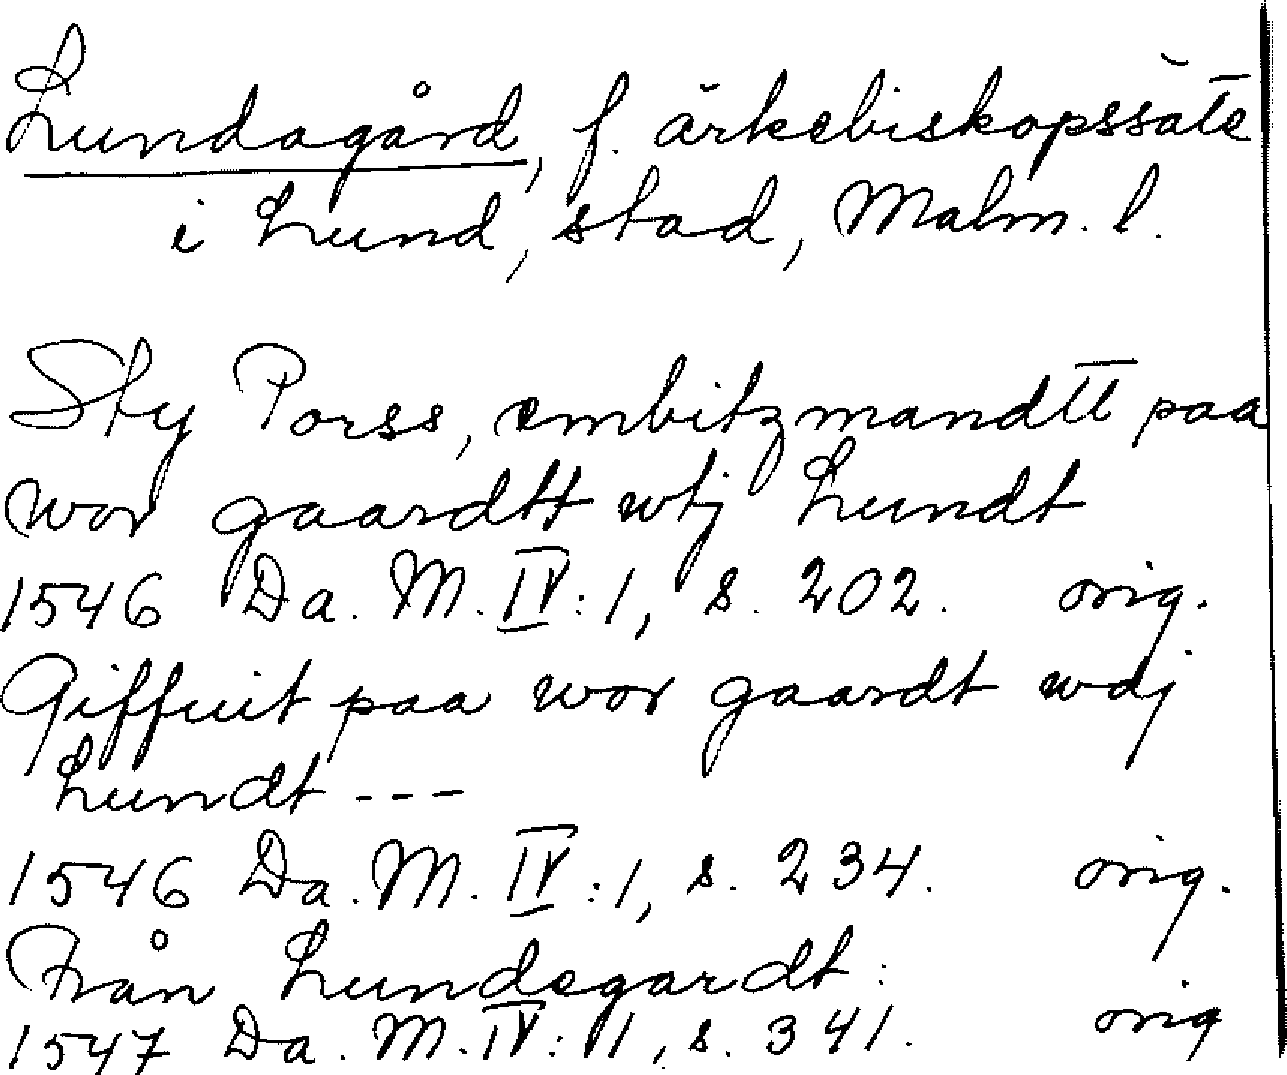 Lundagård, f. ärkebiskopssäte
i Lund, stad, Malm. l.
Sty Porss, embitzmandtt paa
wor gaardtt wtj Lundt
1546 Da. M. IV:1, s. 202. orig.
Giffuit paa wor gaardt wdj
Lundt ---
1546 Da. M. IV:1, s. 234. orig.
Från Lundegardt:
1547 Da. M. IV:1, s. 341. orig